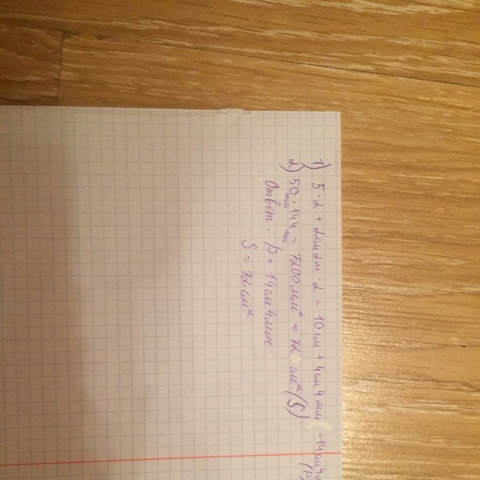 1) 5·2 + 2см2м·2 = 10см + 4см4мм = 14см4м
(P)
2) 50мм·144мм = 7200мм² = 72 см² (S)
Ответ: P = 14см4мм
S = 72см²